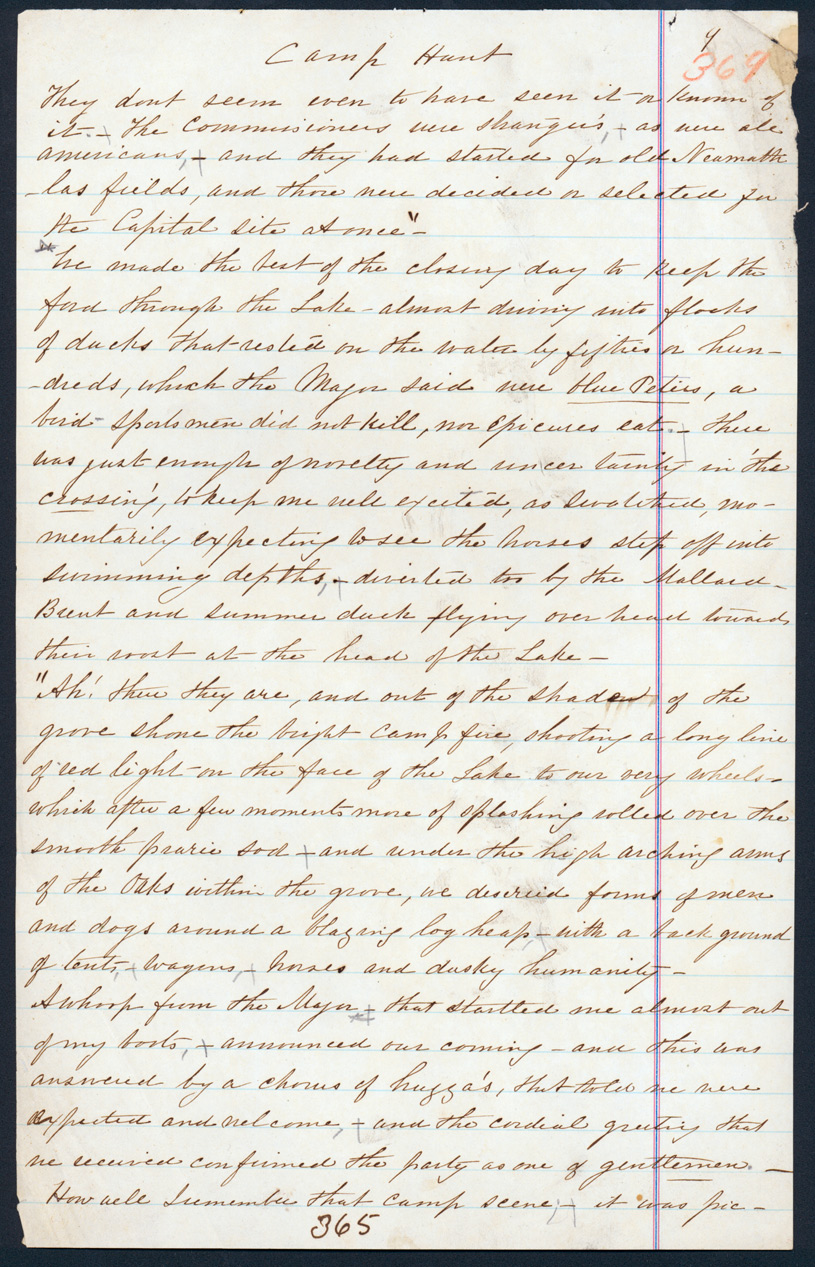 9
369
Camp Hunt
They dont seem even to have seen it or known of
it. - The Commissioners were strangers, - as were all
americans, - and they had started for old Neamath
-las fields, and those were decided or selected for
the Capital site at once" -
We made the best of the closing day to keep the
ford through the Lake - almost driving into flocks
of ducks that rested on the water by fifties or hun-
-dreds, which the Major said were blue Peters, a
bird - sportsmen did not kill, nor Epicures eat. - There
was just enough of novelty and uncertainty in the
crossing, to keep me well excited, as I watched, mo-
mentarily expecting to see the horses step off into
swimming depths, - diverted too by the Mallard -
Brent and summer duck flying over head towards
their roost at the head of the Lake -
"Ah! there they are, and out of the shadow of the
grove shone the bright camp fire, shooting a long line
of red light on the face of the Lake to our very wheels -
which after a few moments more of splashing rolled over the
smooth prarie sod - and under the high arching arms
of the Oaks within the grove, we descried forms of men
and dogs around a blazing log heap, - with a back ground
of tents, - wagons, - horses and dusky humanity -
A whoop from the Major - that startled me almost out
of my boots, - announced our coming - and this was
answered by a chorus of huzza's, that told we were
expected and welcome, - and the cordial greeting that
we received confirmed the party as one of gentlemen. -
How well I remember that camp scene, - it was pic -
365